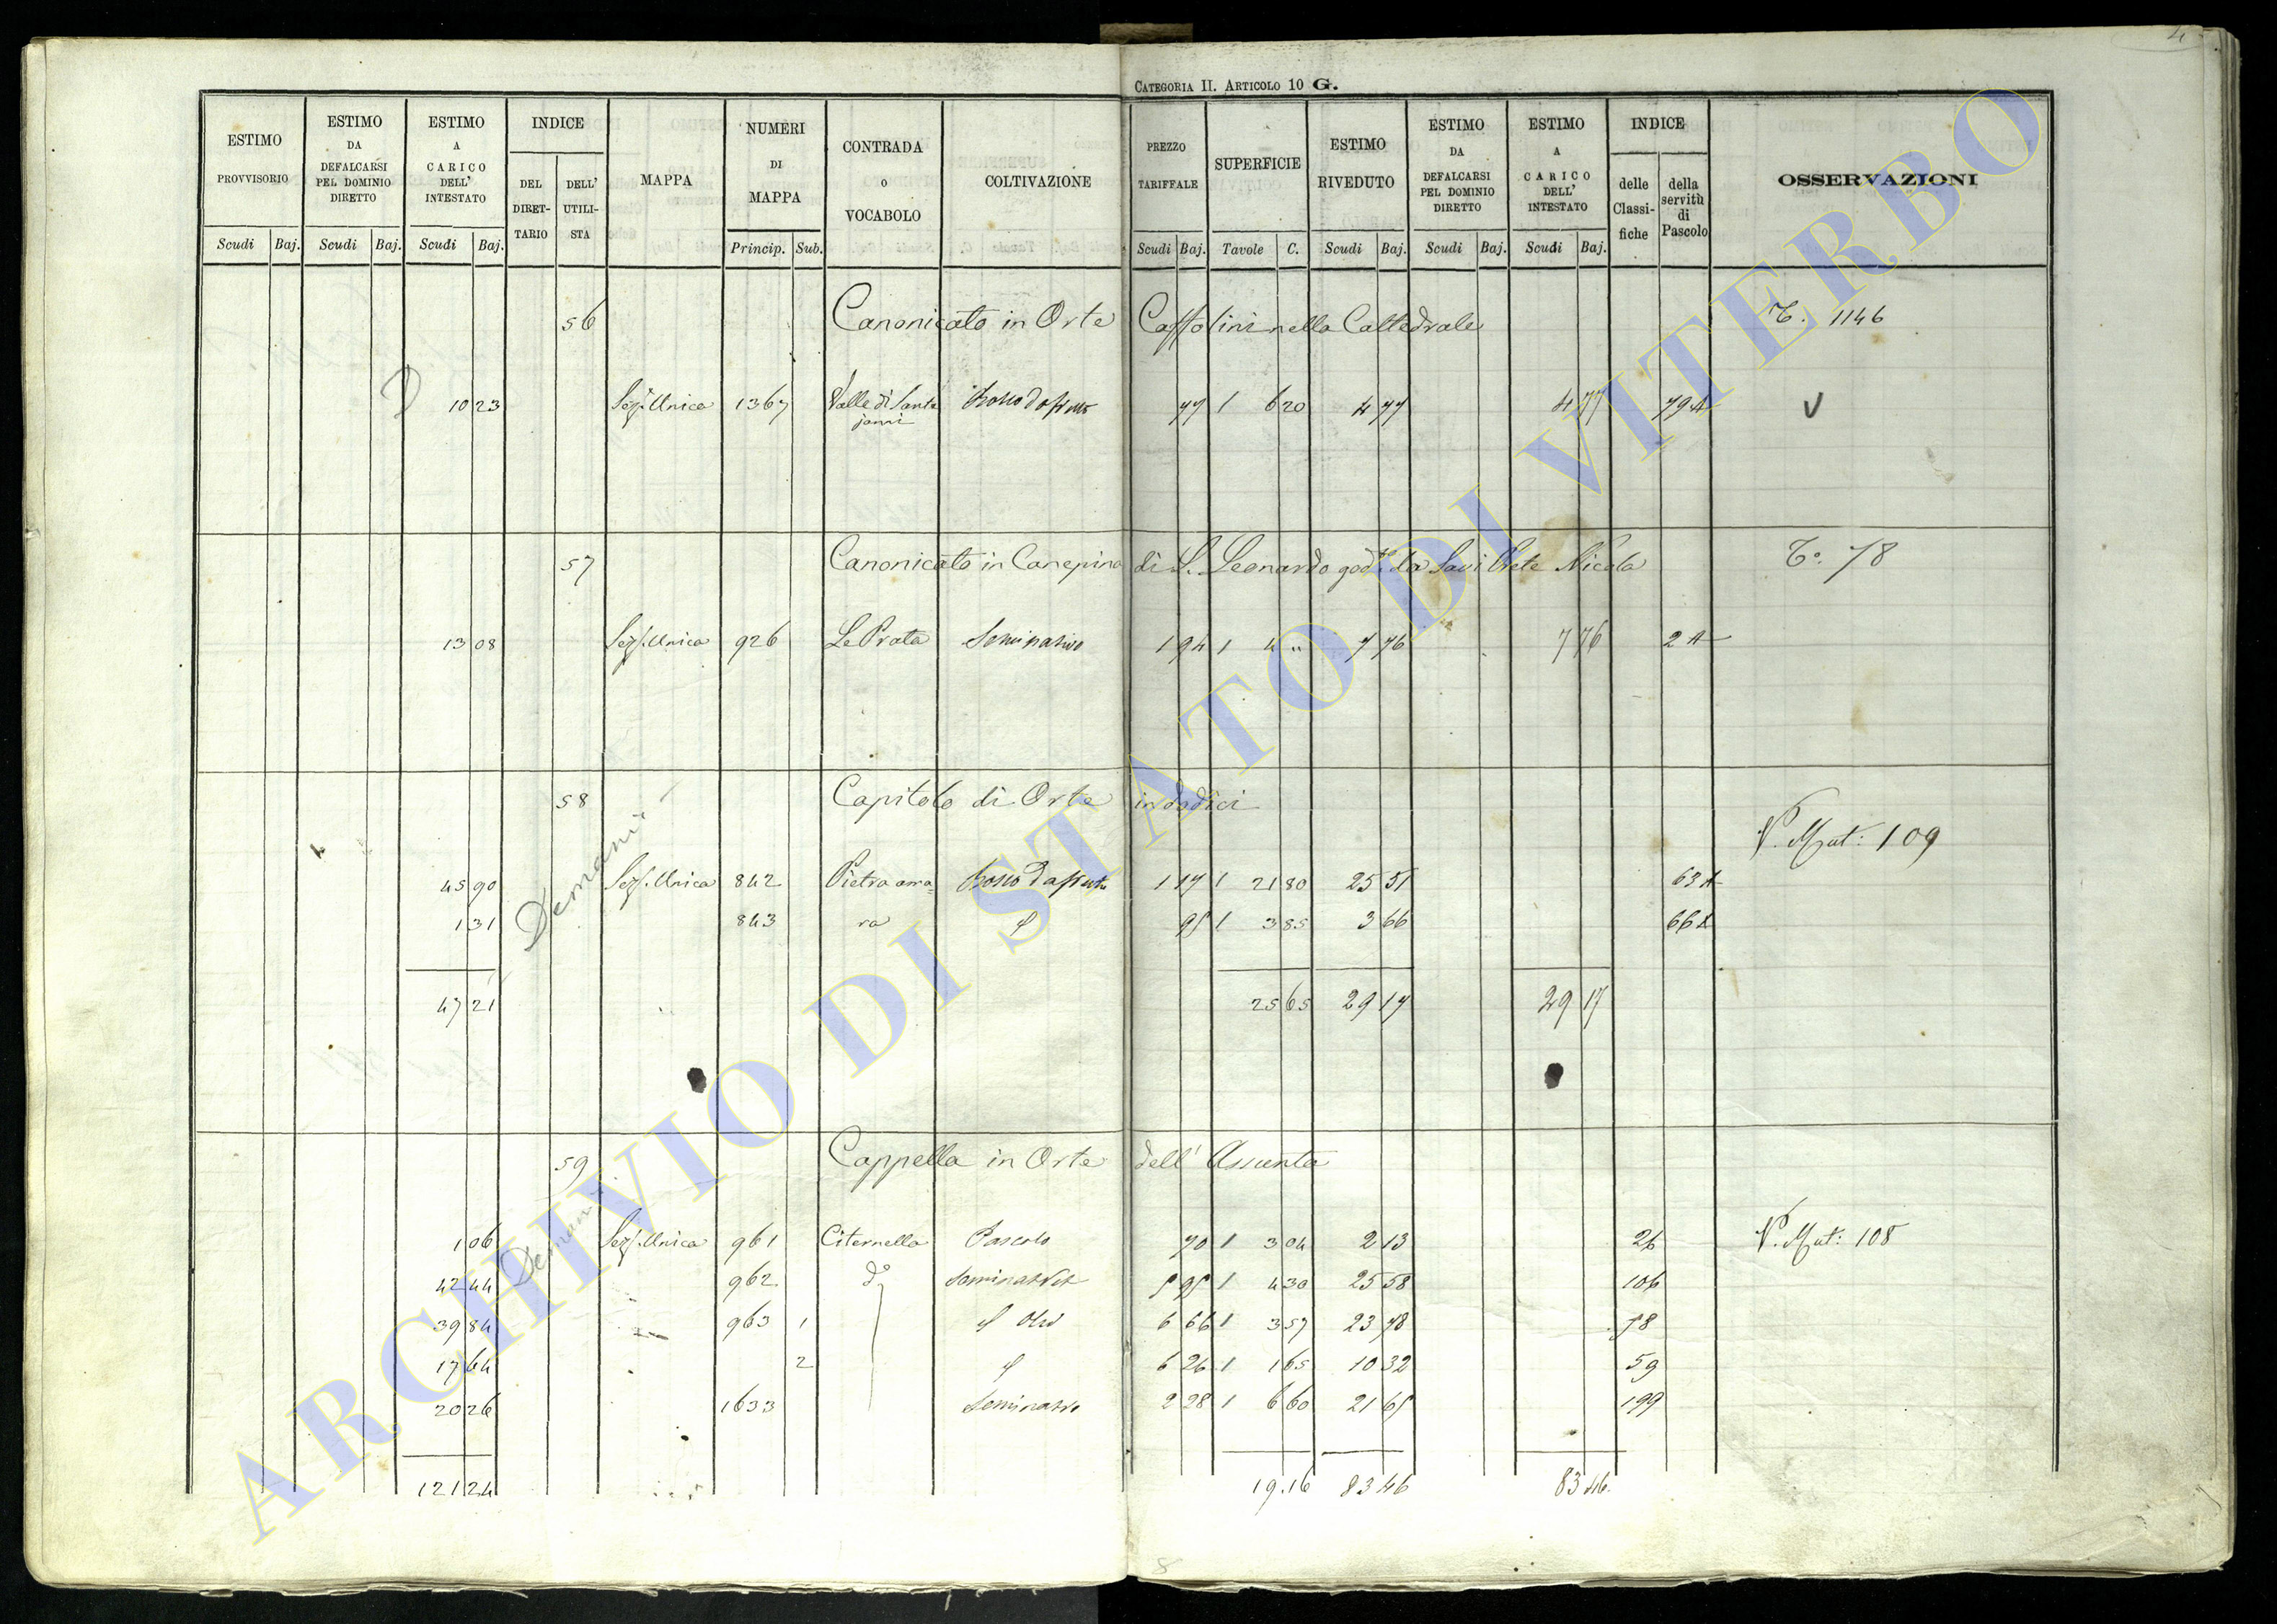 4
CATEGORIA II. ARTICOLO 10 G.
ESTIMO PROVVISORIO
ESTIMO DA DEFALCARSI PEL DOMINIO DIRETTO
ESTIMO A CARICO DELL' INTESTATO
INDICE
DEL DIRETTARIO
DELL' UTILISTA
MAPPA
NUMERI DI MAPPA
CONTRADA o VOCABOLO
COLTIVAZIONE
PREZZO TARIFFALE
SUPERFICIE
ESTIMO RIVEDUTO
ESTIMO DA DEFALCARSI PEL DOMINIO DIRETTO
ESTIMO A CARICO DELL' INTESTATO
INDICE
delle Classifiche
della servitù di Pascolo
OSSERVAZIONI
Scudi Baj. Scudi Baj. Scudi Baj. Princip. Sub. Scudi Baj. Tavole C. Scudi Baj. Scudi Baj. Scudi Baj.
56 Canonicato in Orte nella Cattedrale 1146
10 23 Sez. Unica 1367 Valle di Santa 77 1 6 20 4 77 4 77 79 A V
janni
57 Canonicato in Canepina di S. Leonardo god. da Savi Prete Nicola T.o 78
13 08 Sez. Unica 926 Le Prata Seminativo 1 94 1 4 " 7 76 7 76 2 A
58 Capitolo di Orte in dodici
N. Mat: 109
Demanio
45 90 Sez. Unica 842 Pietra ama= Bosco da frutto 1 17 1 21 80 25 51 63 A
1 31 843 ra 95 1 3 85 3 66 66 A
47 21 25 65 29 17 29 17
59 Cappella in Orte dell' Assunta
Demanio
1 06 Sez. Unica 961 Citernella Pascolo 70 1 3 04 2 13 26 N. Mat: 108
42 44 962 do 5 95 1 4 30 25 58 106
39 84 963 1 6 66 1 3 57 23 78 58
17 64 2 6 26 1 1 65 10 32 59
20 26 1633 Seminativo 2 28 1 6 60 21 65 199
121 24 19.16 83 46 83 46
8
ARCHIVIO DI STATO DI VITERBO